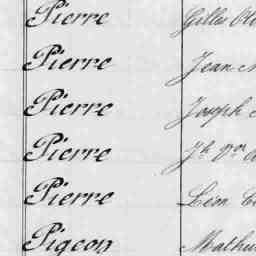 Pierre Gilles
Pierre Jean
Pierre Joseph
Pierre Jh
Pierre Léon
Pigeon